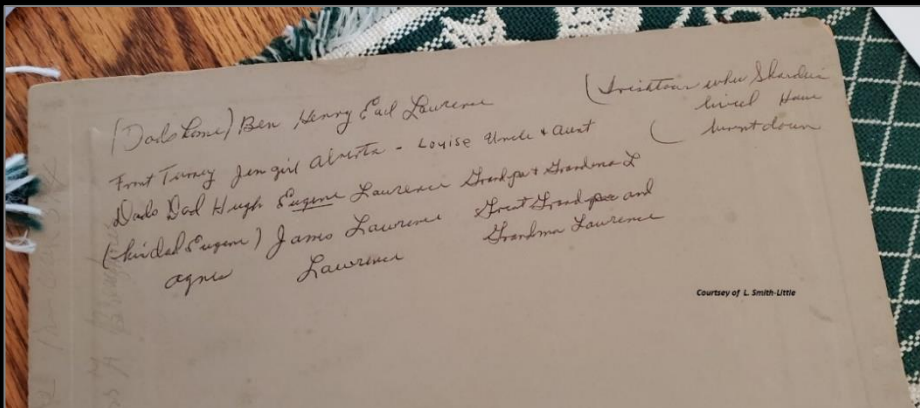 (Dads home) Ben Henry Earl Lawrence
Front Turney Jen girl Alverta - Louise Uncle & Aunt
Dads Dad Hugh Eugene Lawrence Grandpa & Grandma L
(Eugene) James Lawrence Great Grandpa and
Agnes Lawrence Grandma Lawrence
( when
lived Home
( burnt down
Courtsey of L. Smith-Little